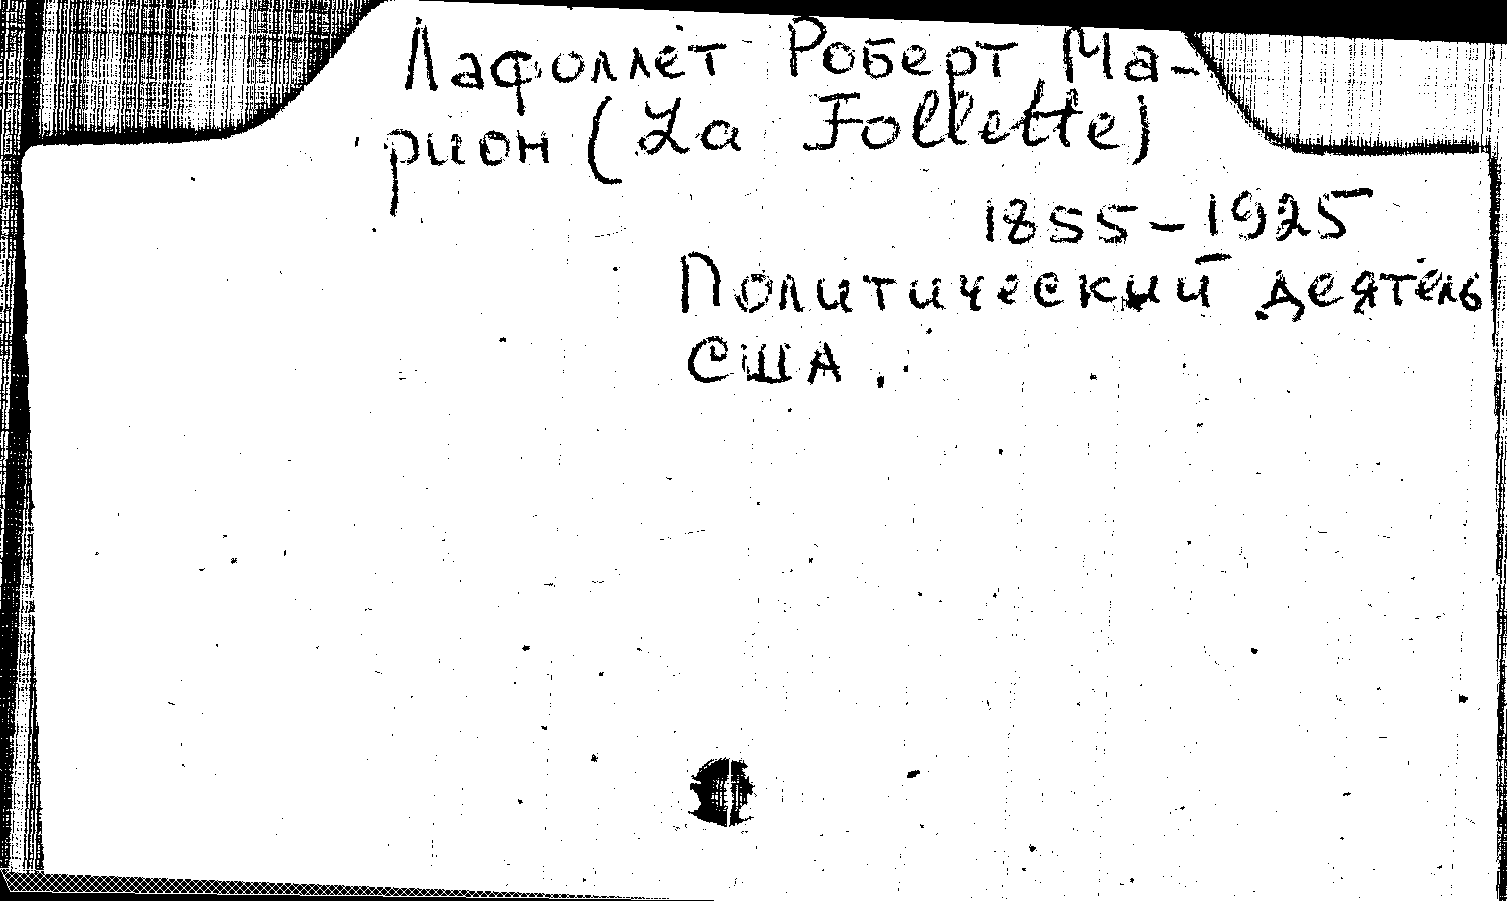 Лафоллет Роберт Ма-
рион (La Follette)
1855-1925
Политический деятель
США.